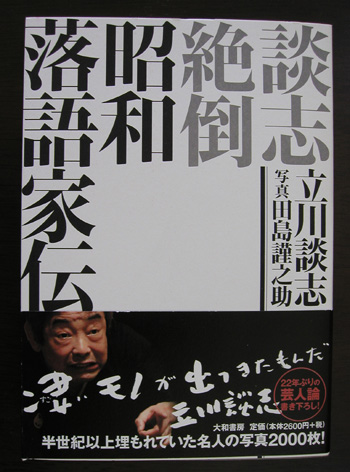 談志
絶倒
昭和
落語家伝
立川談志
写真 田島謹之助
凄いモノが出てきたもんだ
立川談志
22年ぶりの
芸人論
書き下ろし!
大和書房 定価(本体2600円+税)
半世紀以上埋もれていた名人の写真2000枚!